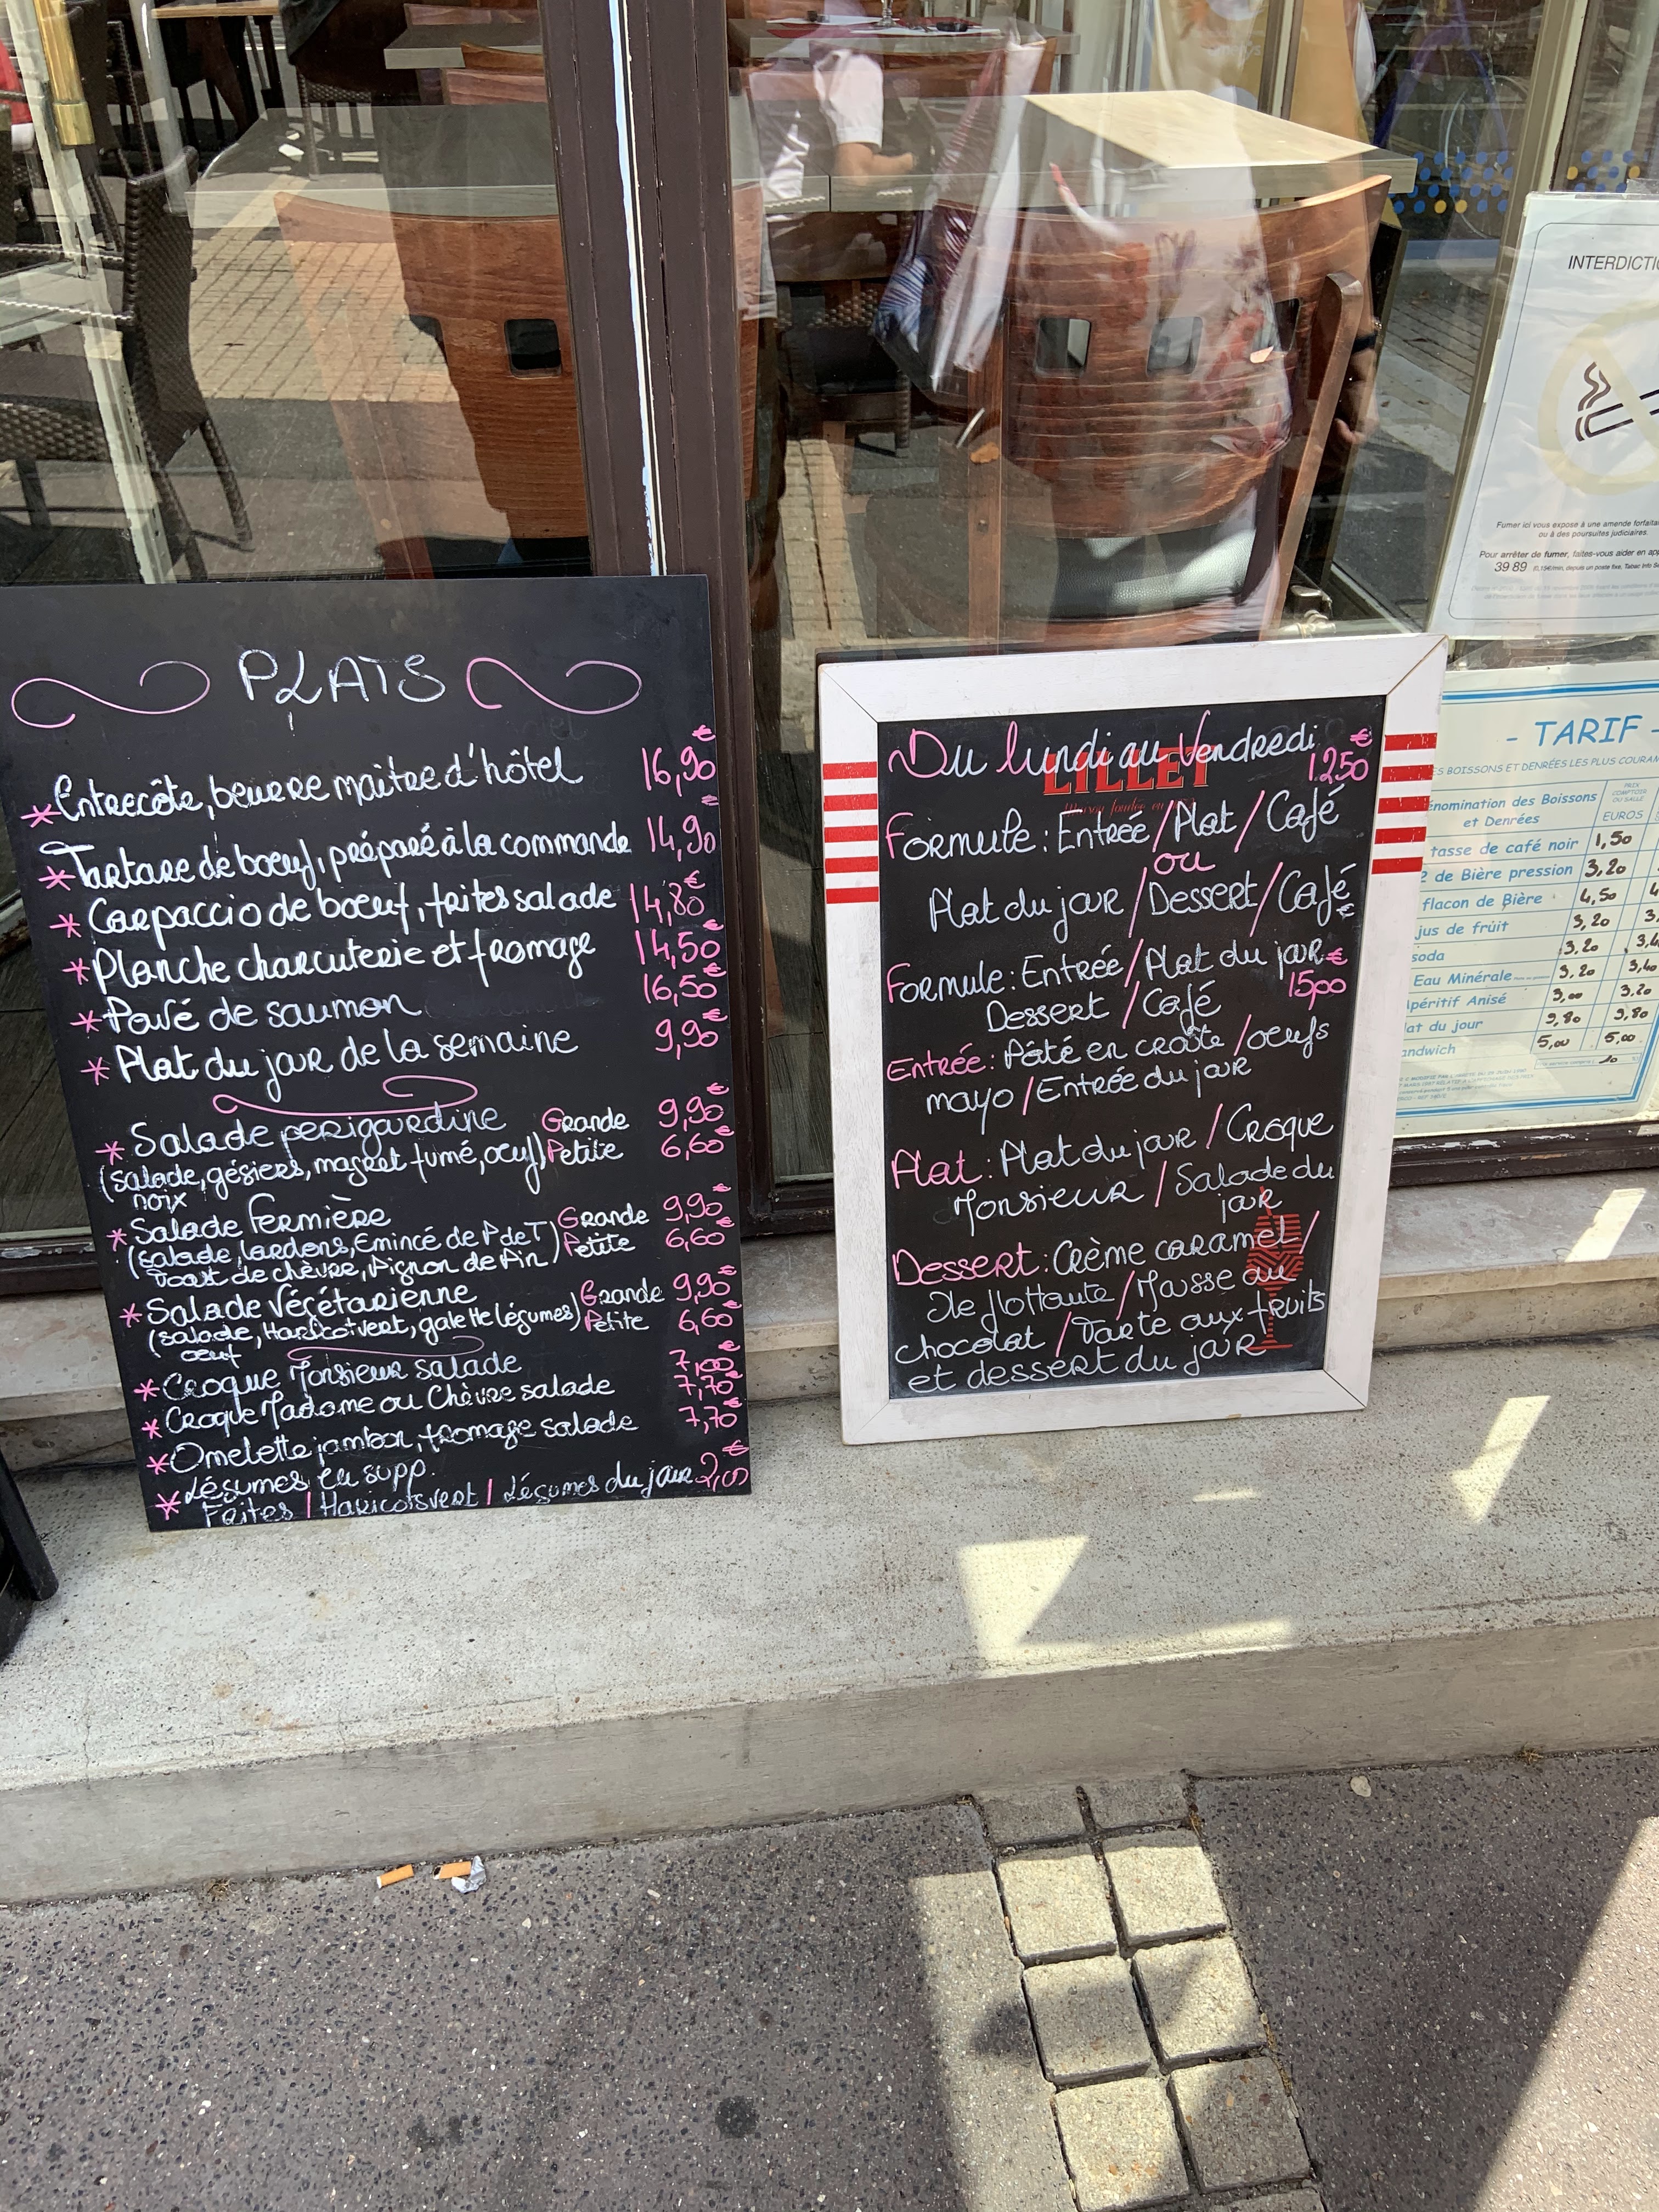 PLATS
Entrecôte, beurre maitre d'hôtel 16,90 €
Tartare de boeuf, préparé à la commande 14,90 €
Carpaccio de boeuf, frites salade 14,80 €
Planche charcuterie et fromage 14,50 €
Pavé de saumon 16,50 €
Plat du jour de la semaine 9,90 €
Salade perigardine Grande 9,90 €
(salade, gésiers, magret fumé, oeuf) Petite 6,60 €
noix
Salade Fermière Grande 9,90 €
(salade, lardons, Emincé de P de T) Petite 6,60 €
Toast de chèvre, Pignon de Pin
Salade Végétarienne Grande 9,90 €
(salade, Haricot vert, galette légumes) Petite 6,60 €
oeuf
Croque Monsieur salade 7,00 €
Croque Madame ou Chèvre salade 7,70 €
Omelette jambon, fromage salade 7,70 €
Légumes en supp.
Frites / Haricots vert / Légumes du jour 2,00 €
Du lundi au Vendredi €
LILLET 12,50
Formule : Entrée / Plat / Café
ou
Plat du jour / Dessert / Café
Formule : Entrée / Plat du jour €
Dessert / Café 15,00
Entrée : Pâté en croûte / oeufs
mayo / Entrée du jour
Plat : Plat du jour / Croque
Monsieur / Salade du
jour
Dessert : Crème caramel /
Ile flottante / Mousse au
chocolat / Tarte aux fruits
et dessert du jour
INTERDICTIO
Fumer ici vous expose à une amende forfaita
ou à des poursuites judiciaires.
Pour arrêter de fumer, faites-vous aider en app
39 89 (0,15€/min, depuis un poste fixe, Tabac Info Se
- TARIF -
ES BOISSONS ET DENRÉES LES PLUS COURAN
énomination des Boissons
et Denrées
PRIX
COMPTOIR
OU SALLE
EUROS
tasse de café noir 1,50
de Bière pression 3,20
flacon de Bière 4,50
jus de fruit 3,20
soda 3,20 3,4
Eau Minérale 3,20 3,40
Apéritif Anisé 3,00 3,20
lat du jour 9,80 9,80
andwich 5,00 5,00